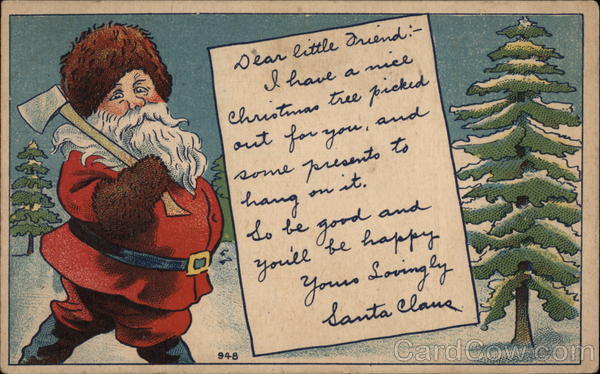 Dear little Friend:-
I have a nice
Christmas tree picked
out for you, and
some presents to
hang on it.
So be good and
you'll be happy
Yours Lovingly
Santa Claus
948
CardCow.com